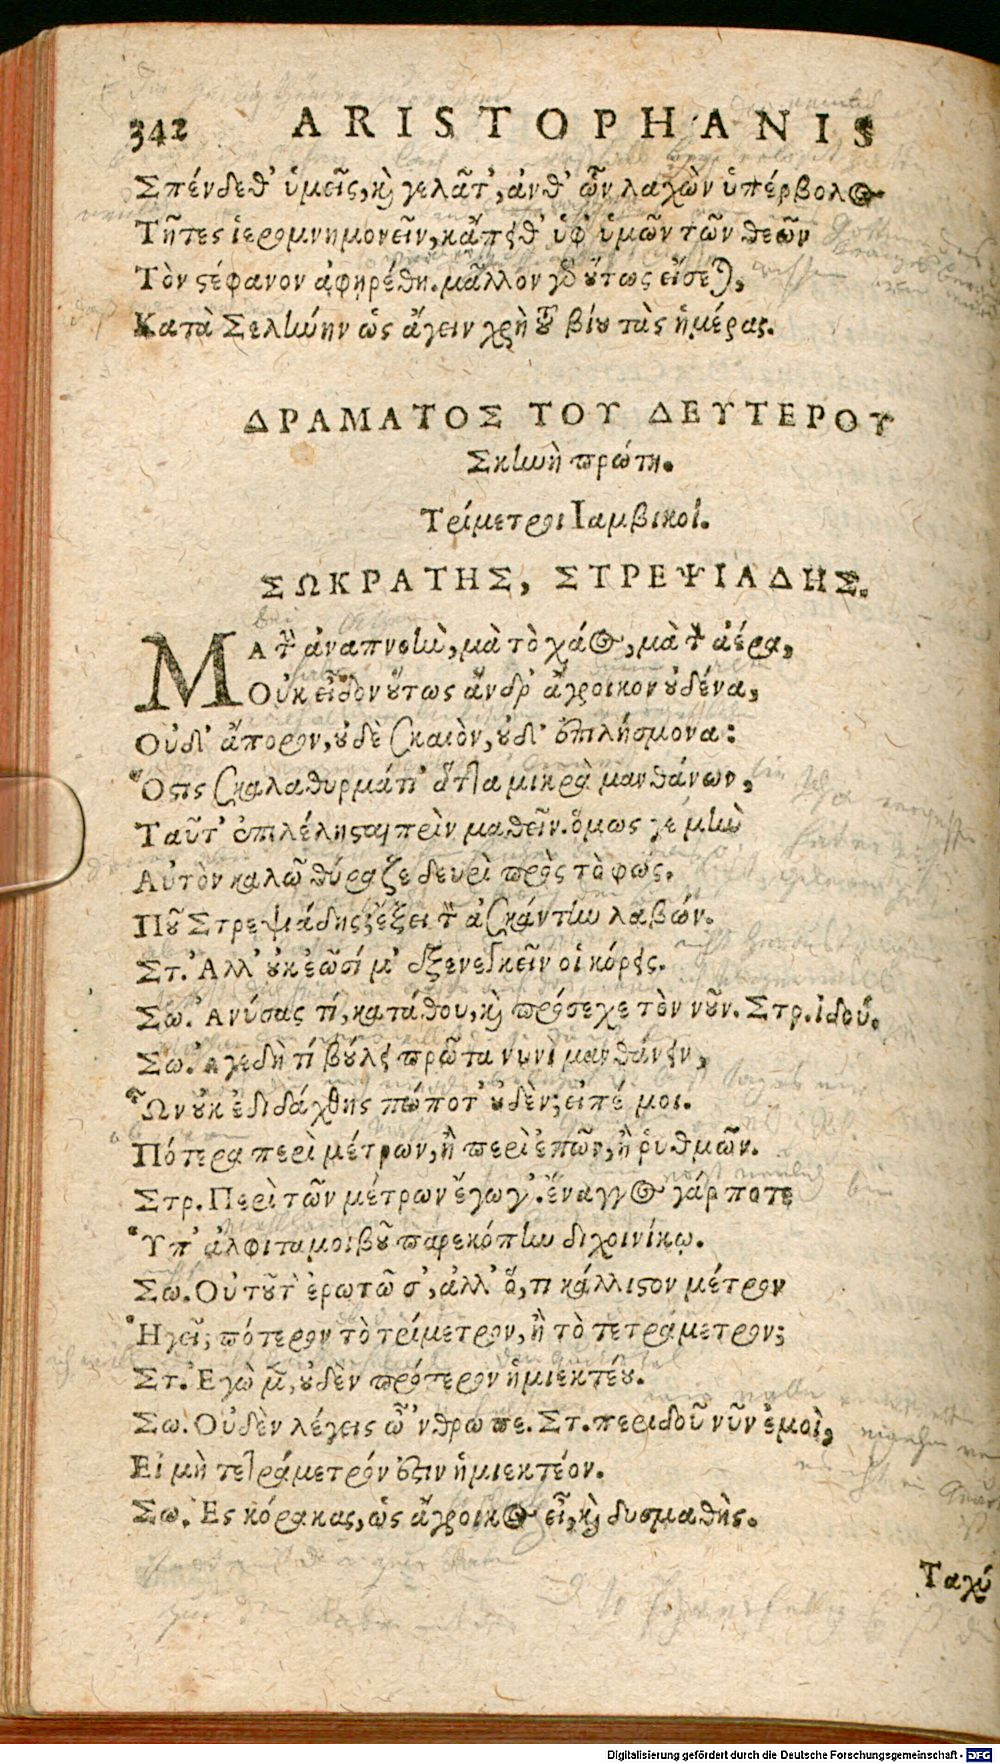 342 ARISTOPHANIS
Σπένδεθ' ὑμεῖς, ϗ γελᾶτ', ἀνθ' ὧν λαχὼν ὑπέρβολος
Τῆτες ἱερομνημονεῖν, κἄπειθ' ὑφ' ὑμῶν τῶν θεῶν
Τὸν ϛέφανον ἀφῃρέθη. μᾶλλον γὰρ ȣ̓́τως εἴσεται,
Κατὰ Σελήνην ὡς ἄγειν χρὴ τοῦ βίȣ τὰς ἡμέρας.
ΔΡΑΜΑΤΟΣ ΤΟΥ ΔΕΥΤΕΡΟΥ
Σκηνὴ πρώτη.
Τρίμετροι Ιαμβικοί.
ΣΩΚΡΑΤΗΣ, ΣΤΡΕΨΙΑΔΗΣ.
ΜΑ τὴν ἀναπνοὴν, μὰ τὸ χάος, μὰ τὸν ἀέρα,
Οὐκ εἶδον ȣ̓́τως ἄνδρ' ἄγροικον ȣ̓δένα,
Οὐδ' ἄπορον, ȣ̓δὲ σκαιὸν, ȣ̓δ' ἐπιλήσμονα:
Ὅϛις σκαλαθυρμάτι' ἄττα μικρὰ μανθάνων,
Ταῦτ' ἐπιλέληςαι πρὶν μαθεῖν. ὅμως γε μὴν
Αὐτὸν καλῶ θύραζε δευρὶ πρὸς τὸ φῶς.
Πȣ͂ Στρεψιάδης; ἔξει τὴν ἀσκάντην λαβών.
Στ. Ἀλλ' ȣ̓κ ἐῶσί μ' ἐξενεγκεῖν οἱ κόρεις.
Σω. Ἀνύσας τί, κατάθου, ϗ πρόσεχε τὸν νοῦν. Στρ. ἰδού.
Σω. ἄγε δὴ τί βȣ́λει πρῶτα νυνὶ μανθάνειν,
Ὧν ȣ̓κ ἐδιδάχθης πώποτ' ȣ̓δὲν; εἰπέ μοι.
Πότερα περὶ μέτρων, ἢ περὶ ἐπῶν, ἢ ῥυθμῶν.
Στρ. Περὶ τῶν μέτρων ἔγωγ'. ἔναγχος γάρ ποτε
Ὑπ' ἀλφιταμοιβȣ͂ παρεκόπην διχοινίκῳ.
Σω. Οὐ τȣ͂τ' ἐρωτῶ σ', ἀλλ' ὅ, τι κάλλιϛον μέτρον
Ἡγεῖ; πότερον τὸ τρίμετρον, ἢ τὸ τετράμετρον;
Στ. Ἐγὼ μὲν, ȣ̓δὲν πρότερον ἡμιεκτέȣ.
Σω. Οὐδὲν λέγεις ὦ 'νθρωπε. Στ. περιδοῦ νῦν ἐμοὶ,
Εἰ μὴ τετράμετρόν ἐϛιν ἡμιεκτέον.
Σω. Ἐς κόρακας, ὡς ἄγροικος εἶ, ϗ δυσμαθὴς.
Ταχύ
Digitalisierung gefördert durch die Deutsche Forschungsgemeinschaft - DFG